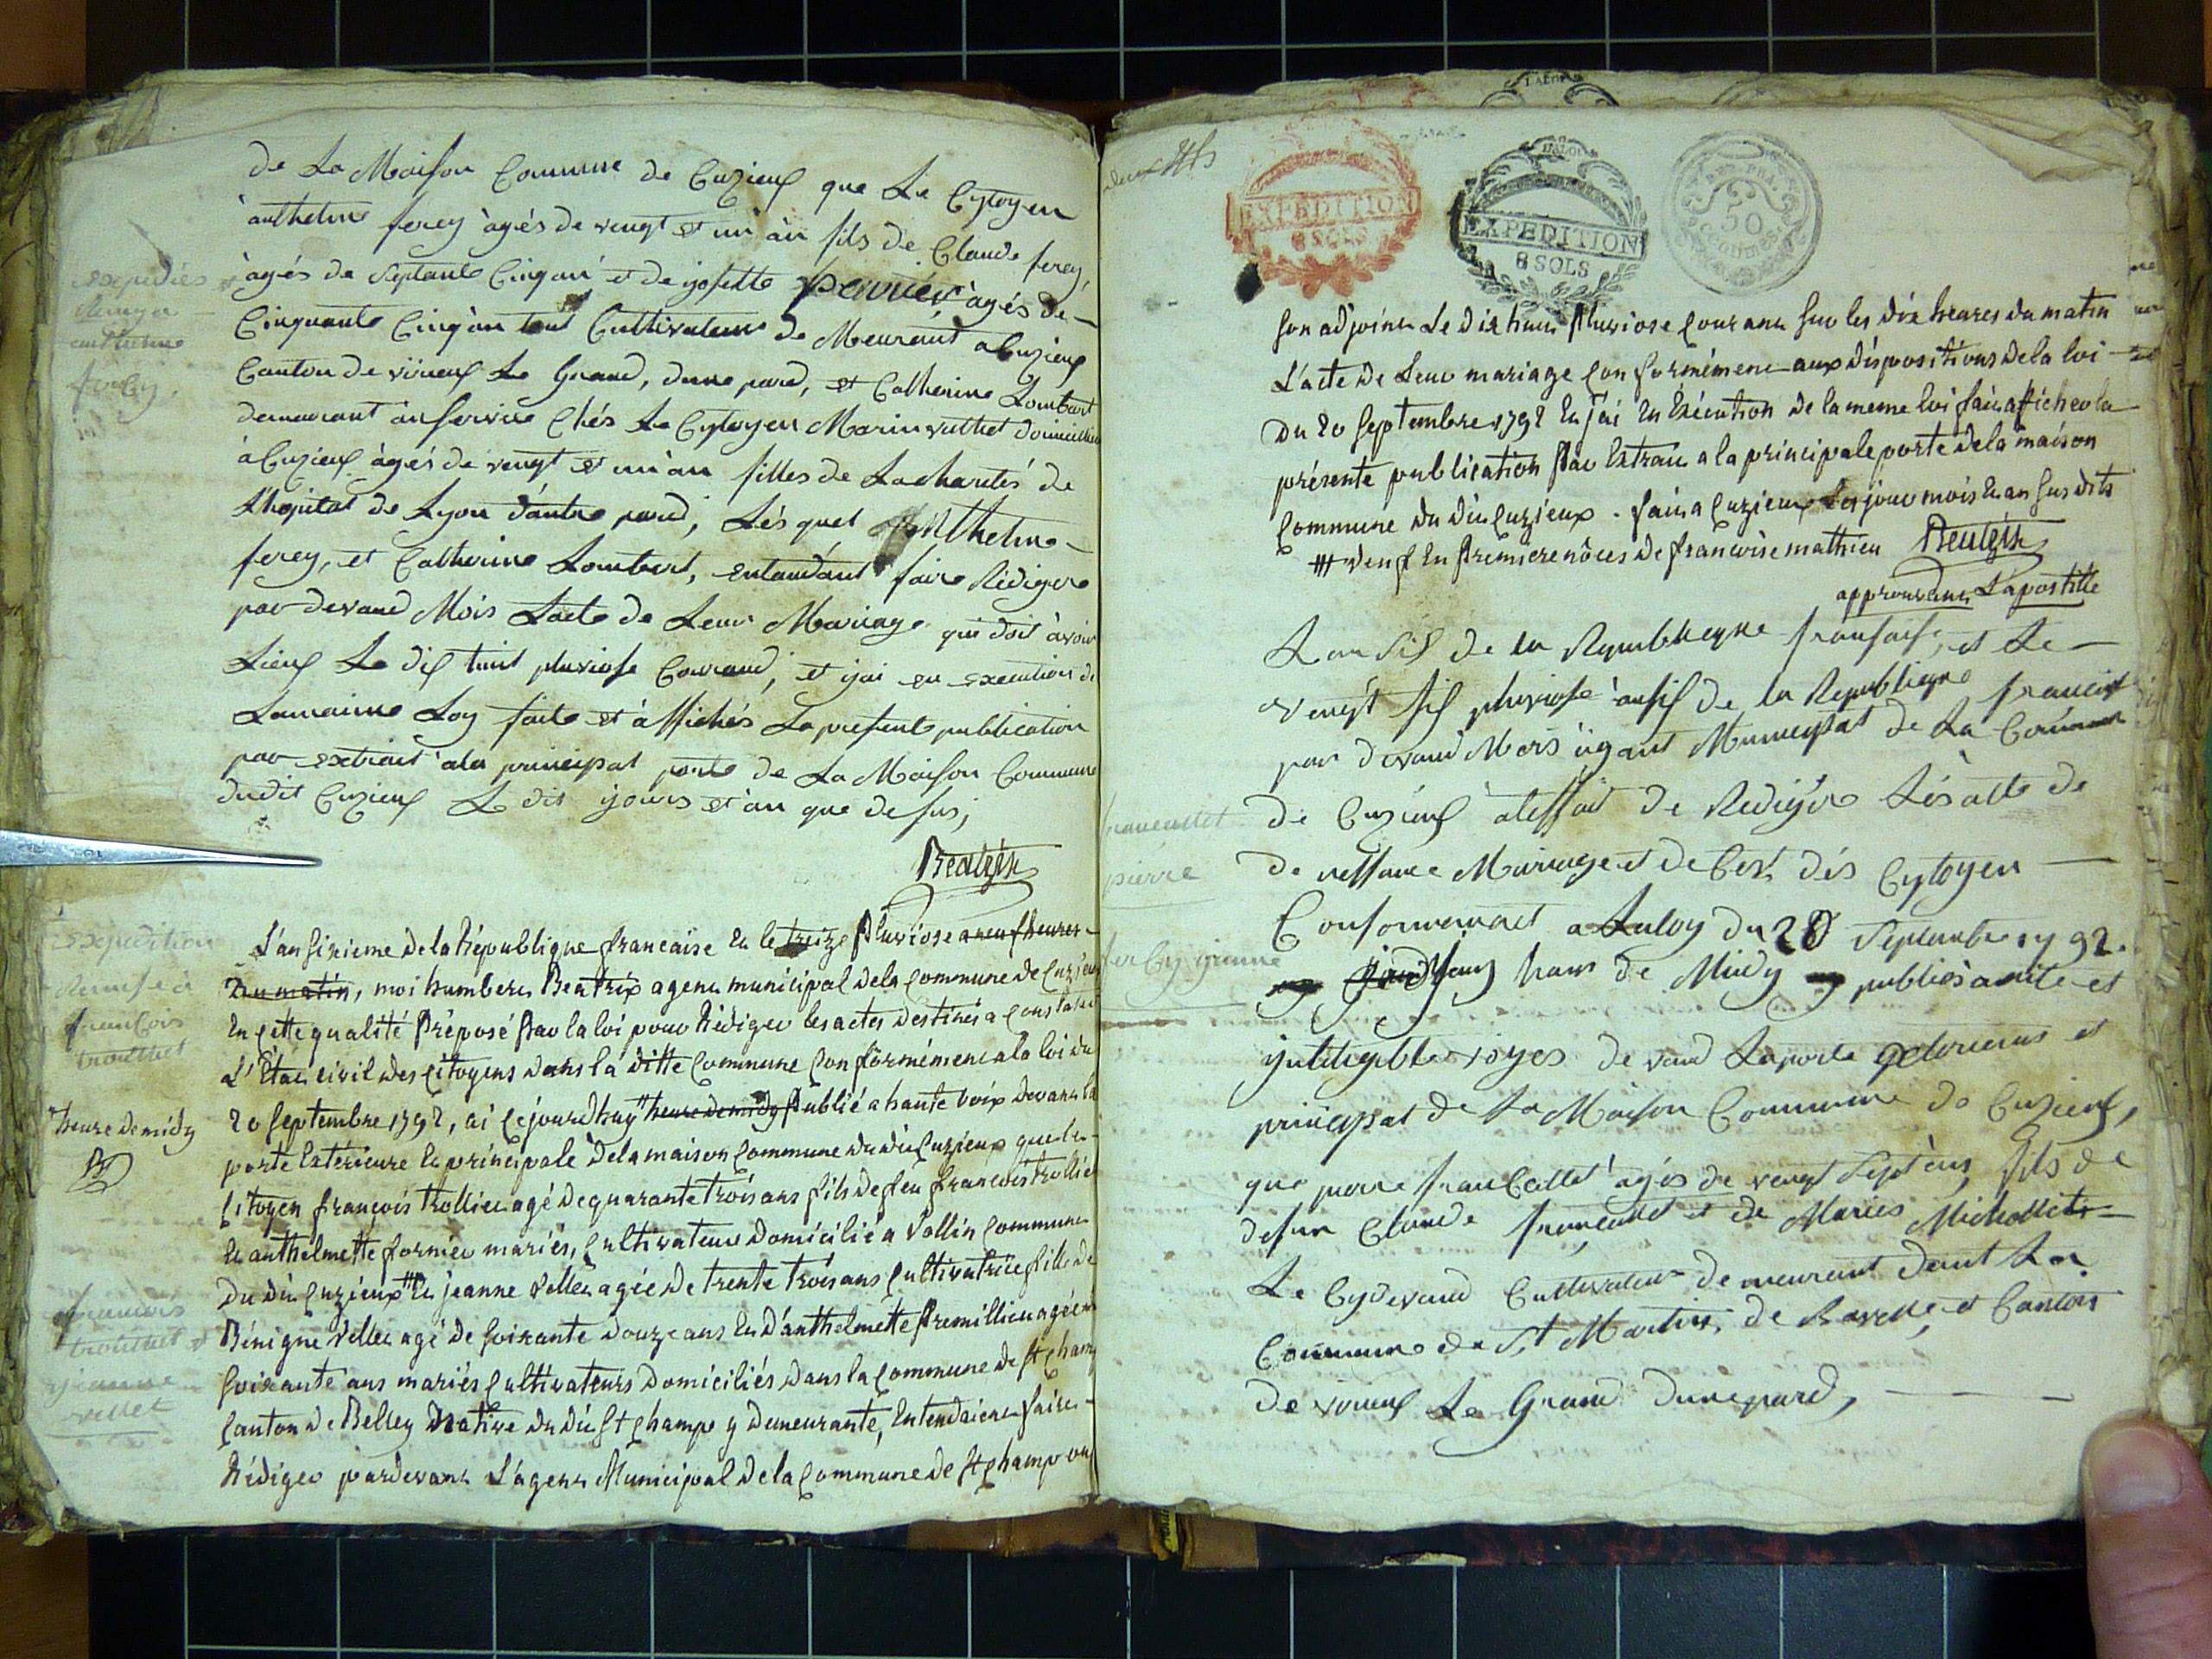 de La Maison Commune de Cuzieuf que Le Cytoyen
anthelme ferey àgés de vengt et un àn fils de Claude ferey,
àgés de Septante Cinq an et de josette perrier àgés de
Cinquante Cinq àn tout Cultivateur de Meurant a Cuzieuf
Canton de virieuf Le Grand, dune pard, et Catherine Lombart
demeurant ànservice Chés Le Cytoyen Marin vuthet domicillie
à Cuzieuf àgés de vengt et un àn filles de La charités de
Lhopital de Lyon dàutre pard, Lésquel anthelme
ferey, et Catherine Lombert, entandant faire Rédigere
par devand Mois Lacte de Leur Mariage qui doit àvoir
Lieuf Le dif huit pluviose Courand, et jai en execution de
Lamaime Loy faite et àffichés La presente publication
par extrait àla principal porte de La Maison Commune
dudit Cuzieuf Le dit jours et àn que desus;
Béatrix
expediés
Remya
anthelme
ferey
L'an sixieme de la République francaise En le treize Pluviose a neuf heures
du matin, moi humbert Béatrix agent municipal de la commune de Cuzieux
En cette qualité Préposé Par la loi pour Rédiger les actes destinés a constater
L'Etat civil des citoyens dans la ditte Commune Conformément a la loi du
20 septembre 1792, ai cejourdhuy heure de midy Publié a haute voix devant la
porte Exterieure Et principale de la maison Commune du dit Cuzieux que le
Citoyen françois trollier agé de quarante trois ans fils de feu francois trollier
Et anthelmette fornier mariés, Cultivateur domicilié a Vollin Commune
du dit Cuzieux Et jeanne Vellet agée de trente trois ans Cultivatrice fille de
Bénigne Vellet agé de soixante douze ans En D'anthelmette Premillieu agée de
soixante ans mariés Cultivateurs domiciliés dans la Commune de St champ
Canton de Belley Native du dit St champ y demeurante, Entendaient faire
Rédiger pardevant L'agent Municipal de la Commune de St champ ou
expedition
Remise à
françois
trouthet
heure de midy
francois
trouthet et
jeanne
vellet
EXPEDITION
8 SOLS
EXPEDITION
8 SOLS
50
son adjoint Le dix huit Pluviose courant sur les dix heures du matin
L'acte de Leur mariage Conformément aux dispositions de la loi
du 20 septembre 1792 En j'ai En Exécution de la meme loi fait afficher la
présente publication Par Extrait a la principale porte de la maison
Commune du dit Cuzieux. fait a Cuzieux Les jour mois Et an susdits
veuf En Premiere nôces de francoise mathieu Béatrix
approuvant L'apostille
Lan sif de la Republieque fransaise, et Le
vengt sif pluviose ànsif de la Republieque francise
par devand Mois agant Municipal de La Commune
de Cuzieuf àleffait de Rédigére Lés acte de
de nessance Mariage et de Cest dés Cytoyen
Conformemant a Laloy du 20 Septembre 1792.
heur de Midy publiés a aute et
jnteligeble voyes devand Laporte Exterieure et
principal de La Maison Commune de Cuzieuf,
que pierre francallet àgés de vengt Sept àns, fils de
defun Claude francallet et de Maries Michollet
Le Cydevand Cultivateur demeurant dant La
Commune de St Martin de Bavelle, et Canton
de virieuf Le Grand dune pard,
francallet
pierre